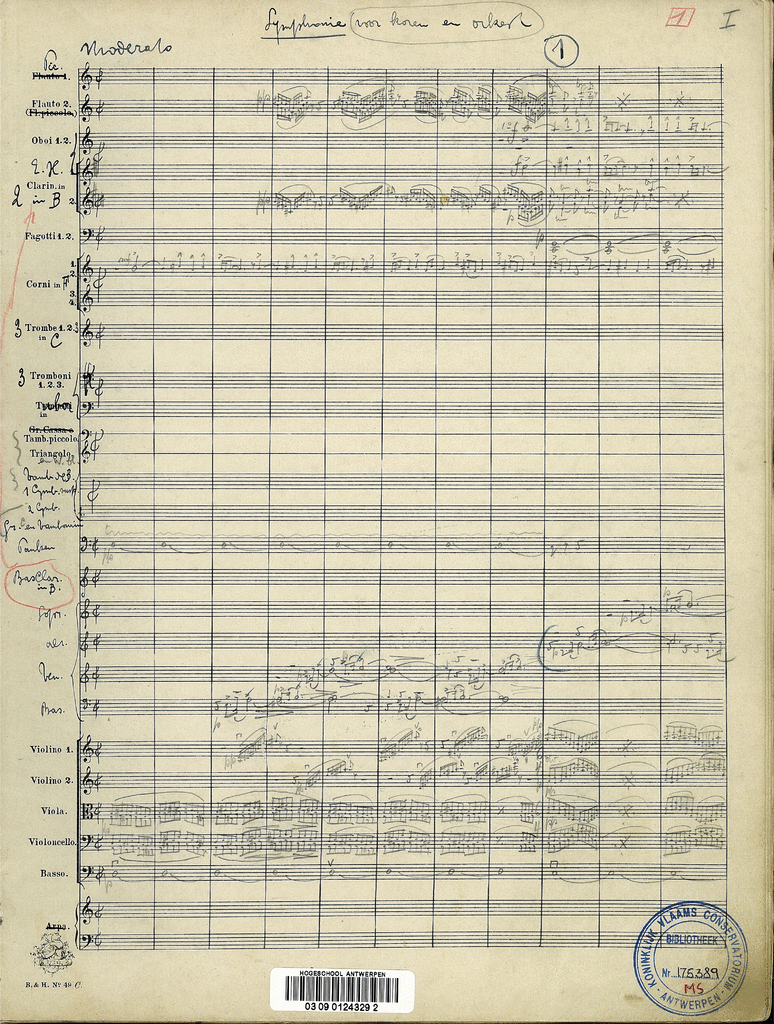 Symphonie voor koren en orkest 1 I
Moderato 1
Picc.
Flauto 1.
Flauto 2.
(Fl. piccolo.)
Oboi 1. 2.
E. H.
Clarin. in
2 in B 2.
Fagotti 1. 2.
1.
2.
Corni in F
3.
4.
3 Trombe 1. 2.
in C
3 Tromboni
1. 2. 3.
Tuba
in
Gr. Cassa e
Tamb. piccolo
Triangolo
1 Cymb.
2 Cymb.
Pauken
BasClar.
in B.
Sopr.
alt.
Ten.
Bas.
Violino 1.
Violino 2.
Viola.
Violoncello.
Basso.
Arpa.
B. & H. Nº 49 C.
HOGESCHOOL ANTWERPEN
03 09 0124329 2
KONINKLIJK VLAAMS CONSERVATORIUM
BIBLIOTHEEK
Nr. 175389
MS
- ANTWERPEN -